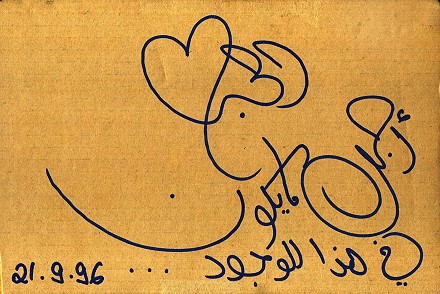 الحب
أجمل
ما يكون
في هذا الوجود ...
21.9.96